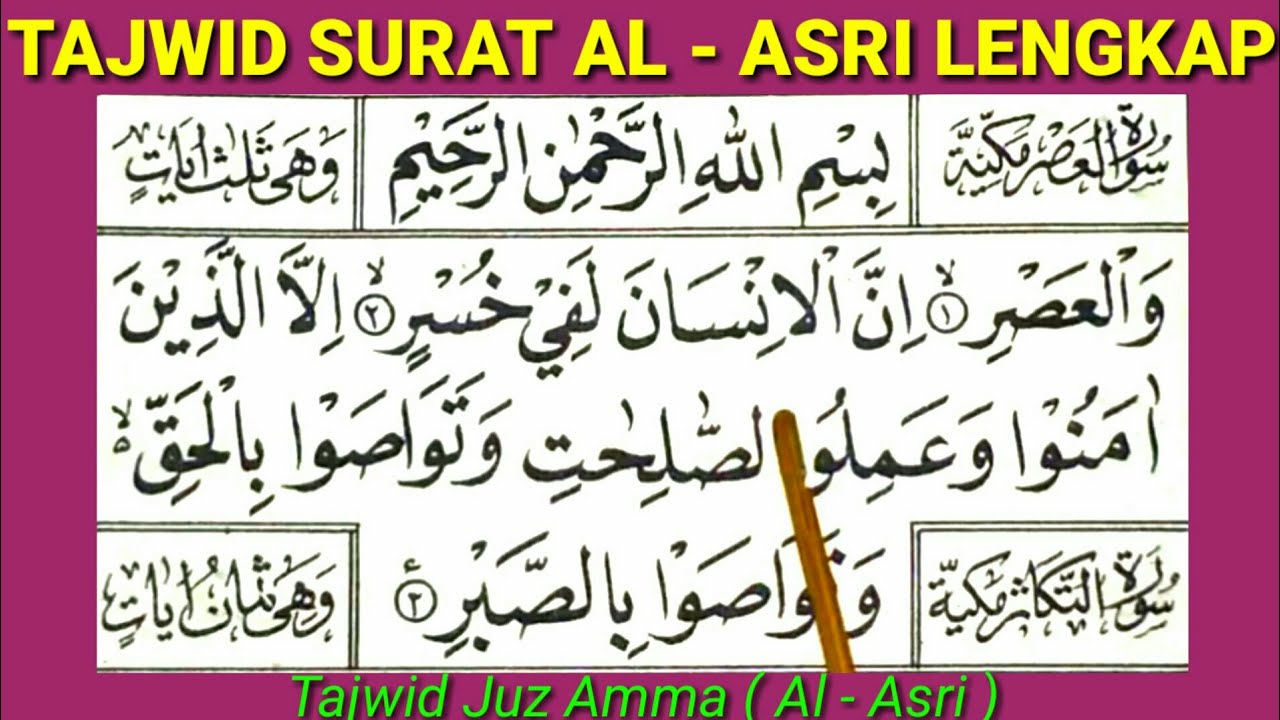 TAJWID SURAT AL - ASRI LENGKAP
سُوْرَةُ الْعَصْرِ مَكِّيَّةٌ
بِسْمِ اللهِ الرَّحْمٰنِ الرَّحِيْمِ
وَهِىَ ثَلٰثُ اٰيَاتٍ
وَالْعَصْرِۙ ﴿١﴾ اِنَّ الْاِنْسَانَ لَفِيْ خُسْرٍۙ ﴿٢﴾ اِلَّا الَّذِيْنَ
اٰمَنُوْا وَعَمِلُوا لصّٰلِحٰتِ وَتَوَاصَوْا بِالْحَقِّ ەۙ
وَتَوَاصَوْا بِالصَّبْرِ ﴿٣﴾
سُوْرَةُ التَّكَاثُرِ مَكِّيَّةٌ
وَهِىَ ثَمَانُ اٰيَاتٍ
Tajwid Juz Amma ( Al - Asri )